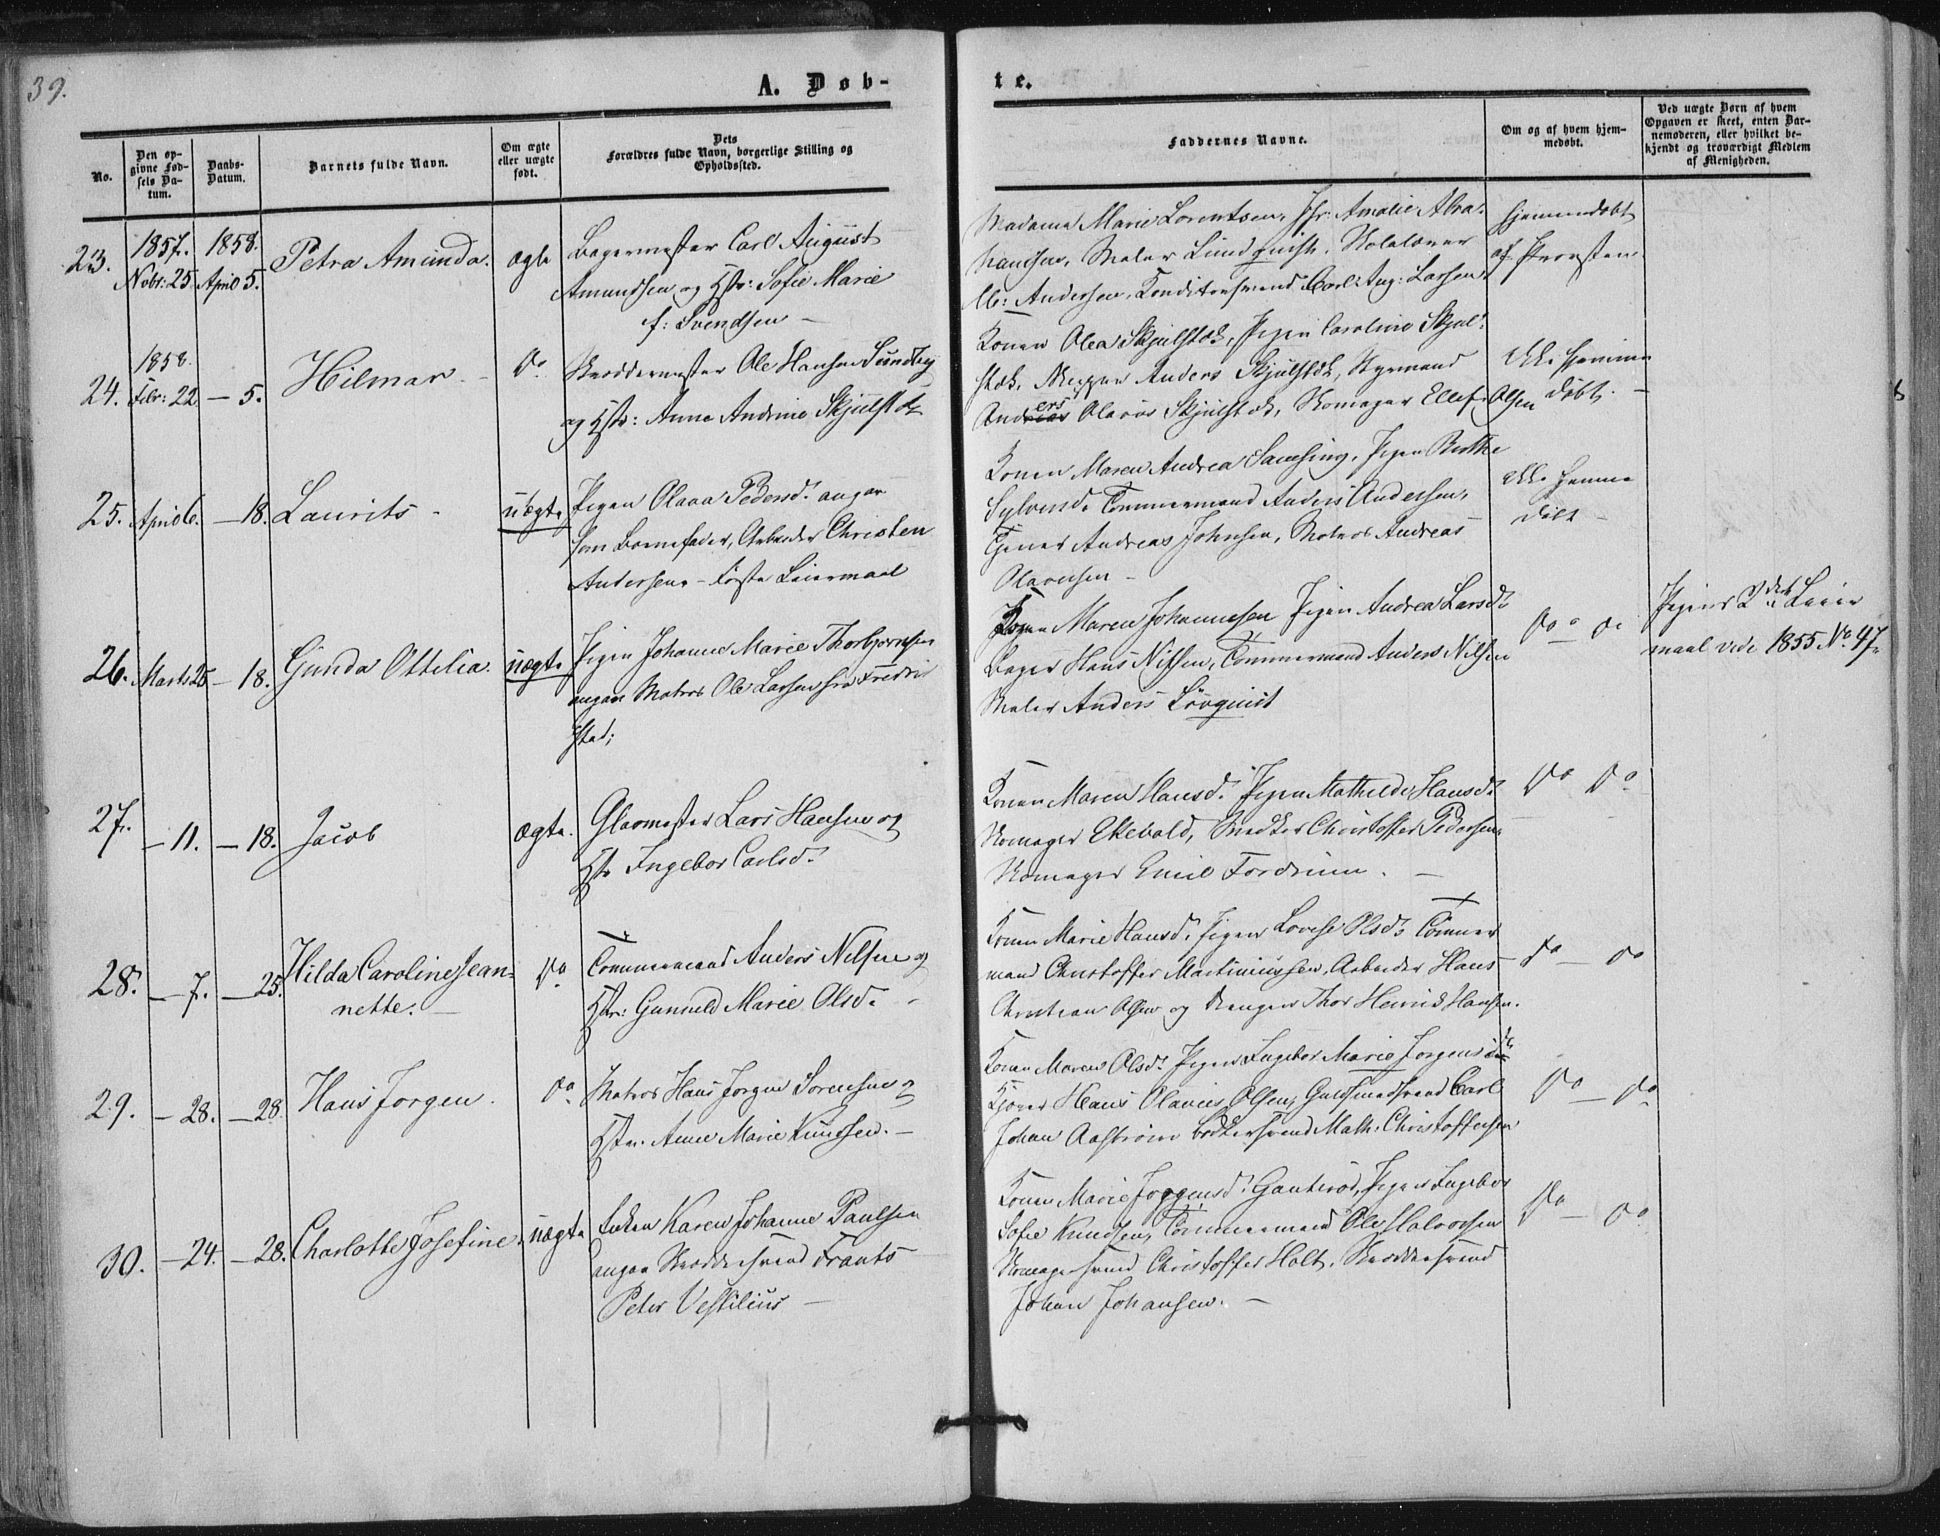 39.
A. Döb-
te.
No.
Den op-
givne Fød-
sels Da-
tum.
Daabs-
Datum.
Barnets fulde Navn.
Om ægte
eller uægte
født.
Dets
Forældres fulde Navn, borgerlige Stilling og
Opholdssted.
Faddernes Navne.
Om og af hvem hjem-
medøbt.
Ved uægte Børn af hvem
Opgaven er skeet, enten Bar-
nemoderen, eller hvilket be-
kjendt og troværdigt Medlem
af Menigheden.
23.
1857.
Nvbr: 25
1858.
April 5.
Petra Amunda.
ægte
Bagermester Carl August
Amundsen og Hstr: Sofie Marie
f: Svendsen —
Madame Marie Lorentsen, Jfr: Amalie Abra-
hamsen, Maler Lundquist, Skolelærer
Andersen, Konditorsvend Carl Aug: Larsen
hjemmedøbt
af Provsten
24.
1858.
Febr: 22
— 5.
Hilmar —
Do
Skræddermester Ole Hansen Sundby
og Hstr: Anne Andrine Skjulstok
Konen Olea Skjulstok, Pigen Caroline Skjul-
stok, Anders Skjulstok, Styrmand
Anders Olavus Skjulstok, Skomager Ellef Olsen
Ikke hjemme
døbt. —
25.
April 6.
— 18.
Laurits —
uægte
Pigen Olava Pedersd. angav
som Barnefader, Arbeider Christen
Andersen — Første Leiermaal
Konen Maren Andrea Pigen Berthe
Sylvesd. Tømmermand Anders Andersen,
Tjener Andreas Johnsen, Matros Andreas
Olavesen —
Ikke hjemme
døbt —
26.
Marts 25
— 18.
Gunda Ottilia.
uægte
Pigen Johanne Marie Thorbjørnsen
angav Matros Ole Larsen fra Fredrik
stad;
Konen Maren Johannesen Pigen Andrea Larsd.
Bager Hans Nilsen, Tømmermand Anders Nilsen
Maler Anders Lövquist
Do — Do
Pigens 2det Leier
maal vide 1855 No 47.
27.
— 11.
— 18.
Jacob
ægte.
Glarmester Lars Hansen og
Hstr Ingebor Carlsd.
Konen Maren Hansd. Pigen Mathilde Hansd.
Skomager Ekevald, Snedker Christoffer Pedersen
Skomager Emil Fordrum. —
Do Do
28.
— 7.
— 25.
Hilda Caroline Jean-
nette. —
Do
Tømmermand Anders Nilsen og
Hstr: Gunnild Marie Olsd. —
Konen Marie Hansd. Pigen Lovise Olsd. Tømmer
mand Christoffer Martiniussen, Arbeider Hans
Christian Olsen og Thor Henrik Hansen.
Do — Do
29.
— 28.
— 28
Hans Jørgen.
Do
Matros Hans Jørgen Sørensen og
Hstr. Anne Marie Knudsen. —
Konen Maren Olsd. Pigen Ingebor Marie Jørgensd.
Hans Olavus Olsen, Guldsmedsvend Carl
Johan Aasbrøm Bødkersvend Math: Christoffersen
Do — Do
30.
— 24.
— 28.
Charlotte Josefine.
uægte
Enken Karen Johanne Paulsen
angav Skræddersvend Frants
Peter Vestilius —
Konen Marie Jørgensd. Ganterød, Pigen Ingebor
Sofie Knudsen, Tømmermand Ole Halvorsen
Skomagersvend Christoffer Holt, Skræddersvend
Johan Johansen. —
Do — Do